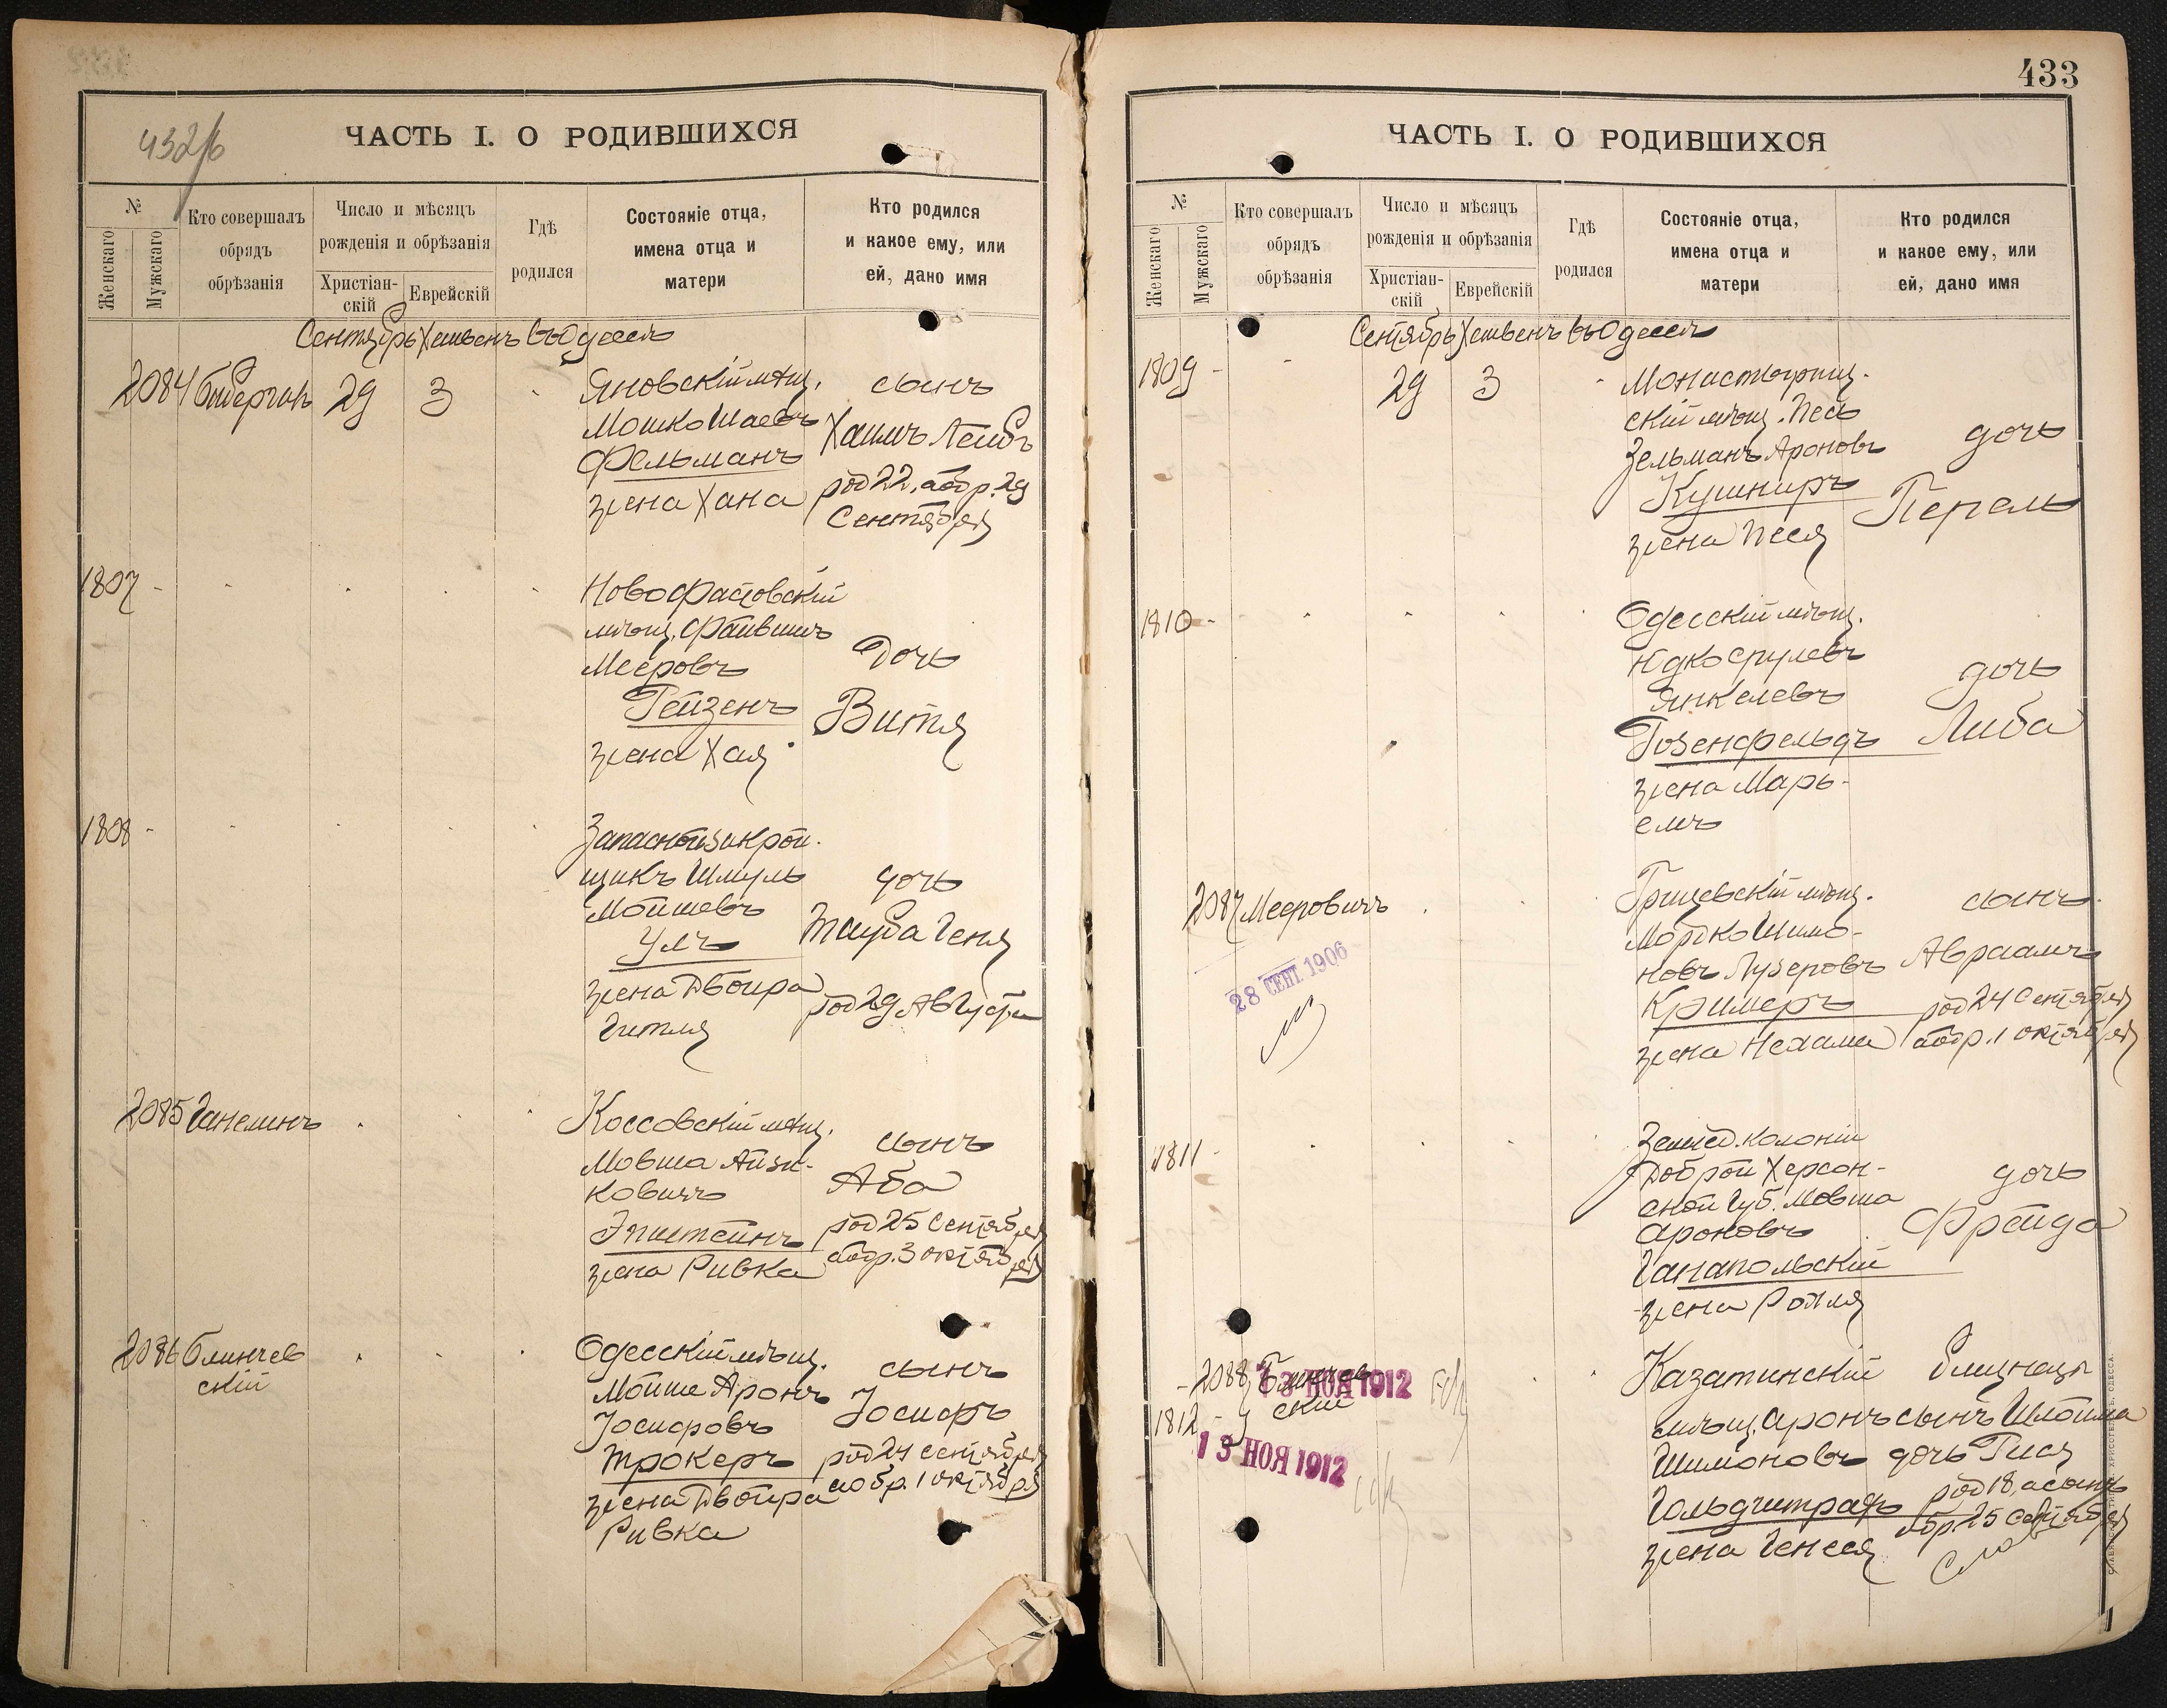 432/б
ЧАСТЬ I. О РОДИВШИХСЯ
№
Женскаго
Мужскаго
Кто совершалъ
обрядъ
обрѣзанія
Число и мѣсяцъ
рожденія и обрѣзанія
Христіан-
скій
Еврейскій
Гдѣ
родился
Состояніе отца,
имена отца и
матери
Кто родился
и какое ему, или
ей, дано имя
Сентябрь Хешвенъ въ Одессѣ
2084
29
3
Яновскій мѣщ.
Мошко Шаевъ
Фельманъ
жена Хана
сынъ
Хаимъ Лейбъ
род 22, а обр. 29
Сентября
1807 -
мѣщ. Фаивишъ
Мееровъ
Гейзенъ
жена Хая
Дочь
Витя
1808 -
Запасной закрой-
щикъ Шмуль
Мойшевъ
Улъ
жена Двойра
Гитля
дочь
Тауба Геня
род 29 Августа
2085 Ганелинъ
Коссовскій мѣщ.
Мовша Айзи-
ковичъ
Эпштейнъ
жена Ривка
сынъ
Аба
род 25 Сентября
а обр. 3 октября
2086 Блинчев
скій
Одесскій мѣщ.
Мойше Аронъ
Іосифовъ
Трокеръ
жена Двойра
Ривка
сынъ
Іосифъ
род 24 сентября
а обр. 1 октября
433
ЧАСТЬ I. О РОДИВШИХСЯ
№
Женскаго
Мужскаго
Кто совершалъ
обрядъ
обрѣзанія
Число и мѣсяцъ
рожденія и обрѣзанія
Христіан-
скій
Еврейскій
Гдѣ
родился
Состояніе отца,
имена отца и
матери
Кто родился
и какое ему, или
ей, дано имя
Сентябрь Хешвенъ въ Одессѣ
1809 -
29
3
Монастырищ-
скій мѣщ.
Зельманъ Ароновъ
Кушниръ
жена Песя
дочь
Перель
1810 -
Одесскій мѣщ.
Юдко Срулевъ
Янкелевъ
Розенфельдъ
жена Марь-
емъ
дочь
Либа
2087 Мееровичъ
28 СЕНТ 1906
Грицевскій мѣщ.
Мордко Шимо-
новъ Лузеровъ
Кримеръ
жена Нехама
сынъ
Авраамъ
род 24 Сентября
а обр. 1 октября
1811 -
Землед. колоніи
Доброй Херсон-
ской Губ. Мовша
Ароновъ
Ганапольскій
жена Ройля
дочь
Фрейда
2088 Блинчев
скій
13 НОЯ 1912
1812 -
13 НОЯ 1912
Казатинскій
мѣщ. Аронъ
Шимоновъ
Гольдштрафъ
жена Генеся
близнецы
сынъ Шлойма
дочь Гися
род 18, а сынъ
обр 25 Сентября